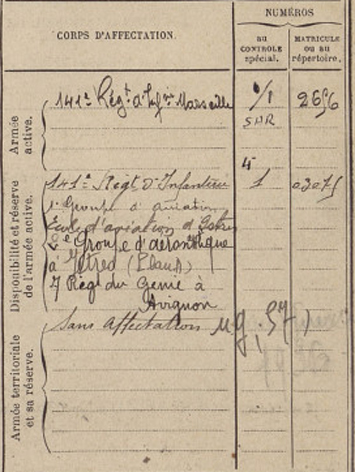 CORPS D'AFFECTATION.
NUMÉROS
au
CONTROLE
spécial.
MATRICULE
ou au
répertoire.
Armée
active.
141e Régt d'Infrie Marseille
1/1
SHR
2656
Disponibilité et réserve
de l'armée active.
141e Régt d'Infanterie
4
1
1er Groupe d'aviation
École d'aviation d'Istres
2e Groupe
à Istres
7 Régt du Génie à
Avignon
Armée territoriale
et sa réserve.
Sans affectation